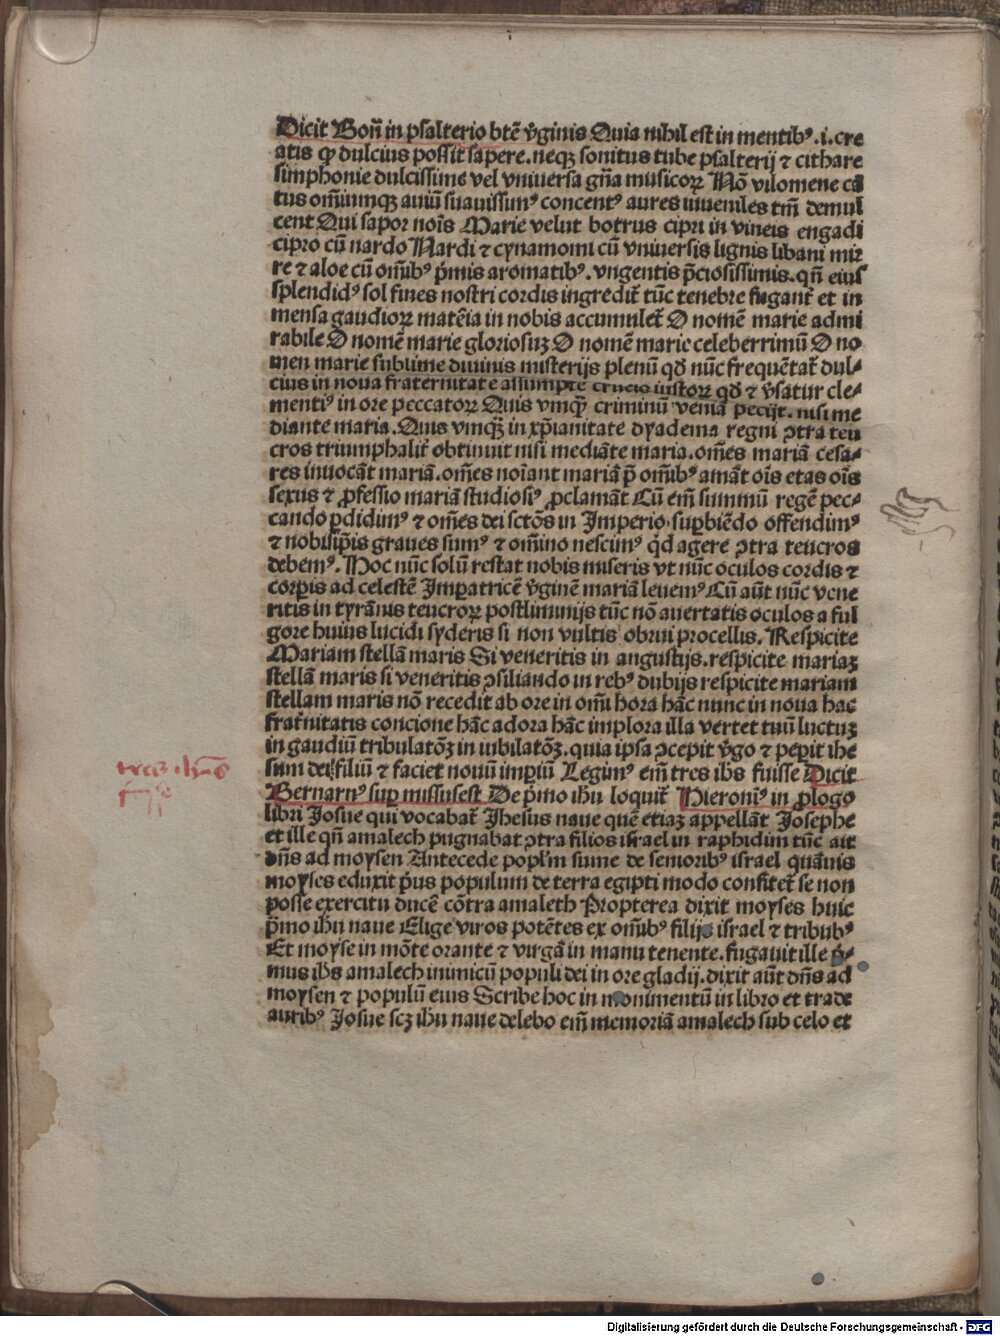 Dicit Bon̄ in psalterio btē v̄ginis Quia nihil est in mentibꝰ .i. cre
atis qꝫ dulcius possit sapere. neqꝫ sonitus tube psalterij ⁊ cithare
simphonie dulcissime vel vniuersa gn̄a musicoꝝ Nō vilomene cā
tus om̄iumqꝫ auiū suauissimꝰ concentꝰ aures iuueniles tm̄ demul
cent Qui sapor noīs Marie velut botrus cipri in vineis engadi
cipro cū nardo Nardi ⁊ cynamomi cū vniuersis lignis libani mir
re ⁊ aloe cū om̄ibꝰ p̄mis aromatibꝰ. vngentis p̄ciosissimis. qn̄ eius
splendidꝰ sol fines nostri cordis ingredit̄ tūc tenebre fugant̄ et in
mensa gaudioꝝ matēia in nobis accumulet̄ O nomē marie admi
rabile O nomē marie gloriosuꝫ O nomē marie celeberrimū O no
men marie sublime diuinis misterijs plenū qd̄ nūc frequētat̄ dul⸗
cius in noua fraternitate assumpte crucis iustoꝝ qd̄ ⁊ v̄satur cle⸗
mentiꝰ in ore peccatoꝝ Quis vmqꝫ̄ criminū veniā peciit. nisi me
diante maria. Quis vmqꝫ̄ in xp̄ianitate dyadema regni ꝯtra teu
cros triumphalit̄ obtinuit nisi mediāte maria. om̄es mariā cesa⸗
res inuocāt mariā. om̄es noīant mariā p̄ om̄ibꝰ amāt oīs etas oīs
sexus ⁊ ꝓfessio mariā studiosiꝰ ꝓclamāt Cū em̄ summū regē pec⸗
cando ꝑdidimꝰ ⁊ om̄es dei sctōs in Imperio suꝑbiēdo offendimꝰ
⁊ nobisip̄is graues sumꝰ ⁊ om̄ino nescimꝰ qd̄ agere ꝯtra teucros
debemꝰ. Hoc nūc solū restat nobis miseris vt nūc oculos cordis ⁊
corꝑis ad celestē Imꝑatricē v̄ginē mariā leuemꝰ Cū aūt nūc vene
ritis in tyrānis teucroꝝ postliminijs tūc nō auertatis oculos a ful
gore huius lucidi syderis si non vultis obrui procellis. Respicite
Mariam stellā maris Si veneritis in angustijs. respicite mariaꝫ
stellā maris si veneritis ꝯsiliando in rebꝰ dubijs respicite mariam
stellam maris nō recedit ab ore in om̄i hora hāc nunc in noua hac
frat̄nitatis concione hāc adora hāc implora illa vertet tuū luctuꝫ
in gaudiū tribulatōꝫ in iubilatōꝫ. quia ipsa ꝯcepit v̄go ⁊ peꝑit ihe
sum dei filiū ⁊ faciet nouū imꝑiū Legimꝰ em̄ tres ihs̄ fuisse Dicit
Bernarnꝰ suꝑ missusest De p̄mo ihū loquit̄ Hieronīꝰ in ꝓlogo
libri Josue qui vocabat̄ Jhesus naue quē etiaꝫ appellāt Josephe
et ille qn̄ amalech pugnabat ꝯtra filios israel in raphidim tūc ait
dn̄s ad moysen Antecede popl̄m sume de senioribꝰ israel quāuis
moyses eduxit p̄us populum de terra egipti modo confitet̄ se non
posse exercitu ducē cōtra amaleth Propterea dixit moyses huic
p̄mo ihū naue Elige viros potētes ex om̄ibꝰ filijs israel ⁊ tribubꝰ
Et moyse in mōte orante ⁊ virgā in manu tenente. fugauit ille p̄⸗
mus ihs̄ amalech inimicū populi dei in ore gladij. dixit aūt dn̄s ad
moysen ⁊ populū eius Scribe hoc in monimentū in libro et trade
auribꝰ Josue scꝫ ihū naue delebo em̄ memoriā amalech sub celo et
Digitalisierung gefördert durch die Deutsche Forschungsgemeinschaft - DFG